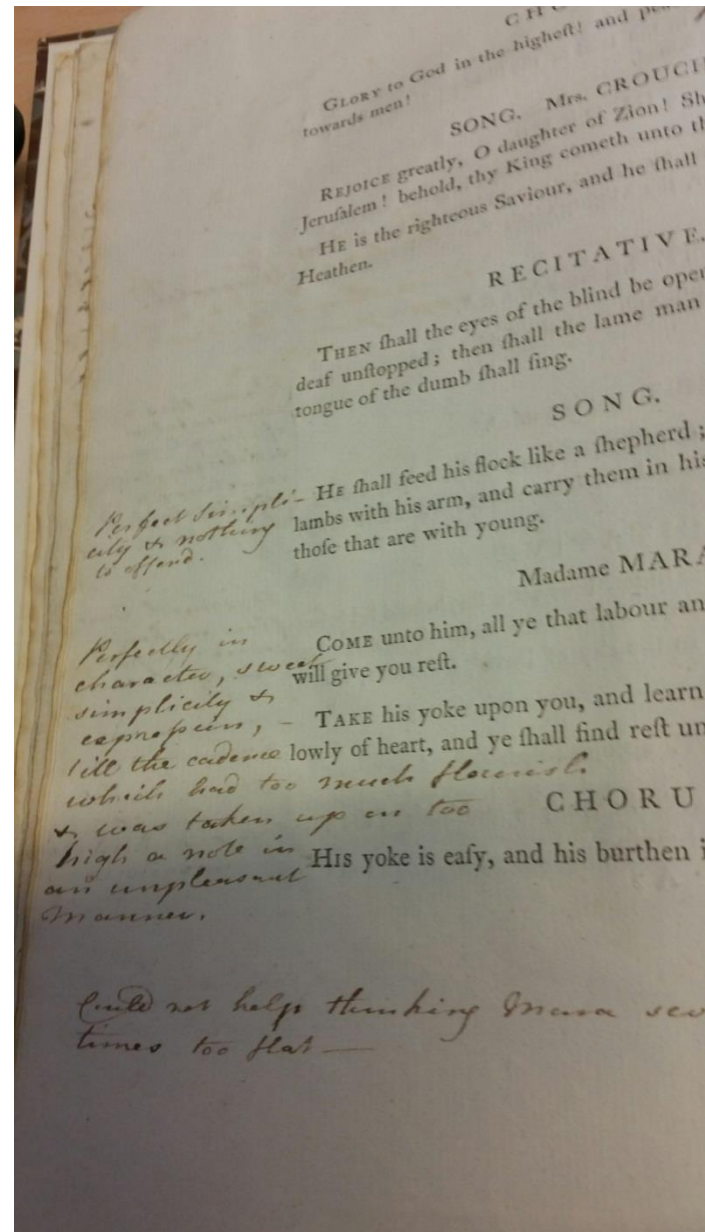 CHO
GLORY to God in the higheſt! and pea
towards men!
SONG. Mrs. CROUCH
REJOICE greatly, O daughter of Zion! Sh
Jeruſalem! behold, thy King cometh unto th
HE is the righteous Saviour, and he ſhall
Heathen.
RECITATIVE.
THEN ſhall the eyes of the blind be open
deaf unſtopped; then ſhall the lame man
tongue of the dumb ſhall ſing.
SONG.
HE ſhall feed his flock like a ſhepherd;
lambs with his arm, and carry them in his
thoſe that are with young.
Perfect simpli-
city & nothing
to offend.
Madame MARA
COME unto him, all ye that labour an
will give you reſt.
TAKE his yoke upon you, and learn
lowly of heart, and ye ſhall find reſt un
Perfectly in
character, sweet
simplicity &
expreſsion, –
'till the cadence
which had too much flourish
& was taken up on too
high a note in
an unpleasant
manner.
CHORU
HIS yoke is eaſy, and his burthen i
Could not help thinking Mara sev
times too flat —